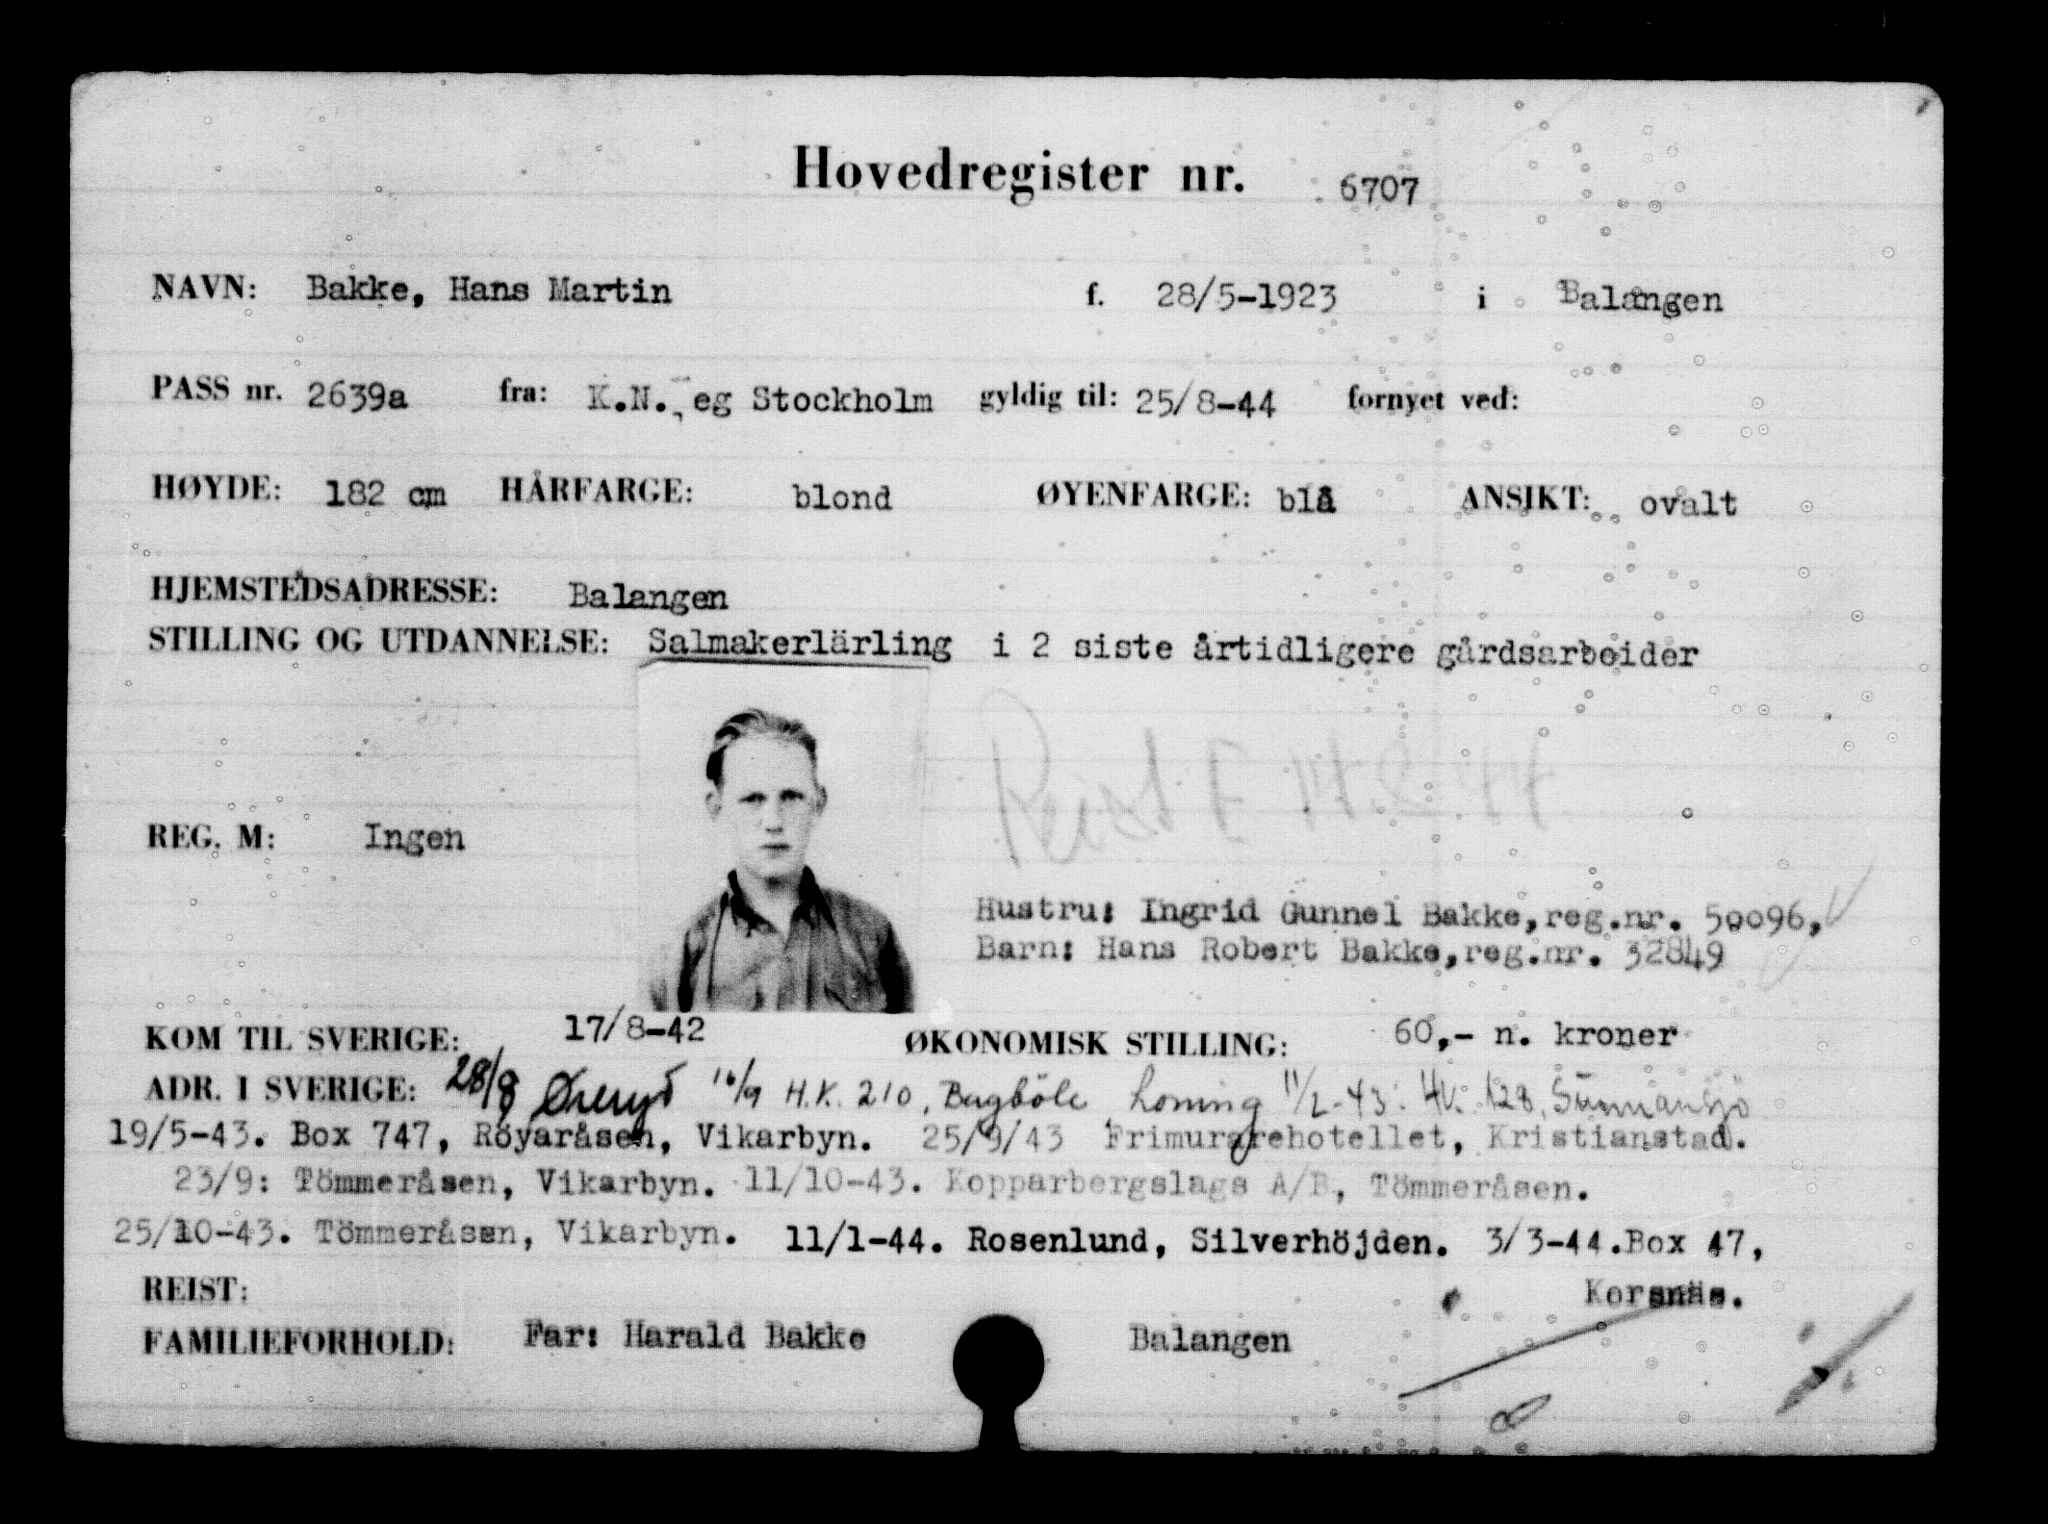 Hovedregister nr. 6707
NAVN: Bakke, Hans Martin f. 28/5-1923 i Balangen
PASS nr. 2639a fra: K.N. eg Stockholm gyldig til: 25/8-44 fornyet ved:
HØYDE: 182 cm HÅRFARGE: blond ØYENFARGE: blå ANSIKT: ovalt
HJEMSTEDSADRESSE: Balangen
STILLING OG UTDANNELSE: Salmakerlärling i 2 siste årtidligere gårdsarbeider
Reist E
REG. M: Ingen
Hustru: Ingrid Gunnel Bakke,reg.nr. 50096,
Barn: Hans Robert Bakke,reg.nr. 32849
KOM TIL SVERIGE: 17/8-42 ØKONOMISK STILLING: 60,- n. kroner
ADR. I SVERIGE: 28/8 Øreryd 16/9 H.K. 210, Bagböle, 11/2-43: 128,
19/5-43. Box 747, Röyaråsen, Vikarbyn. 25/9/43 Frimurarehotellet, Kristianstad.
23/9: Tömmeråsen, Vikarbyn. 11/10-43. Kopparbergslags A/B, Tömmeråsen.
25/10-43. Tömmeråsen, Vikarbyn. 11/1-44. Rosenlund, Silverhöjden. 3/3-44.Box 47,
REIST: Korsnäs.
FAMILIEFORHOLD: Far: Harald Bakke Balangen